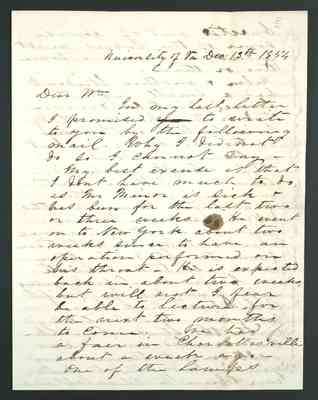 University of Va Dec. 13th 1854
Dear Wm
In my last letter
I promised to write
to you by the following
mail. Why I did not
do so I cannot say -
My best excuse is that
I dont have much to do,
as Mr Minor is sick &
has been for the last two
or three weeks. He went
on to New York about two
weeks since to have an
operation performed on
his throat. He is expected
back in about two weeks
but will not I fear
be able to lecture for
the next two months
to come. We had
a fair in Charlottesville
about a week ago.
One of the Ladies